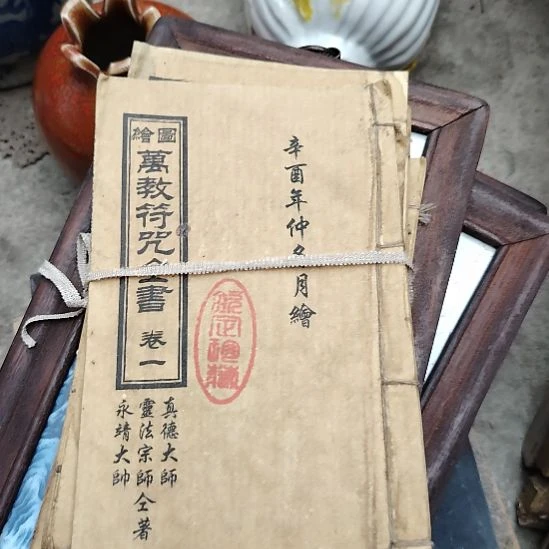 辛酉年仲冬月繪
圖繪
萬教符咒全書 卷一
真德大師
靈法宗師仝著
永靖大帥